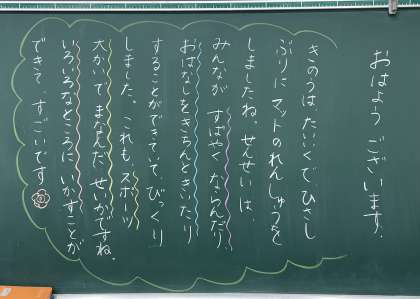 おはよう ございます。
きのうは、たいいくで、ひさし
ぶりに マットのれんしゅうを
しましたね。せんせいは、
みんなが すばやく ならんだり、
おはなしをきちんときいたり
することができていて、びっくり
しました。これも、スポーツ
大かいで まなんだ せいかですね。
いろいろなところに いかすことが
できて、すごいです。